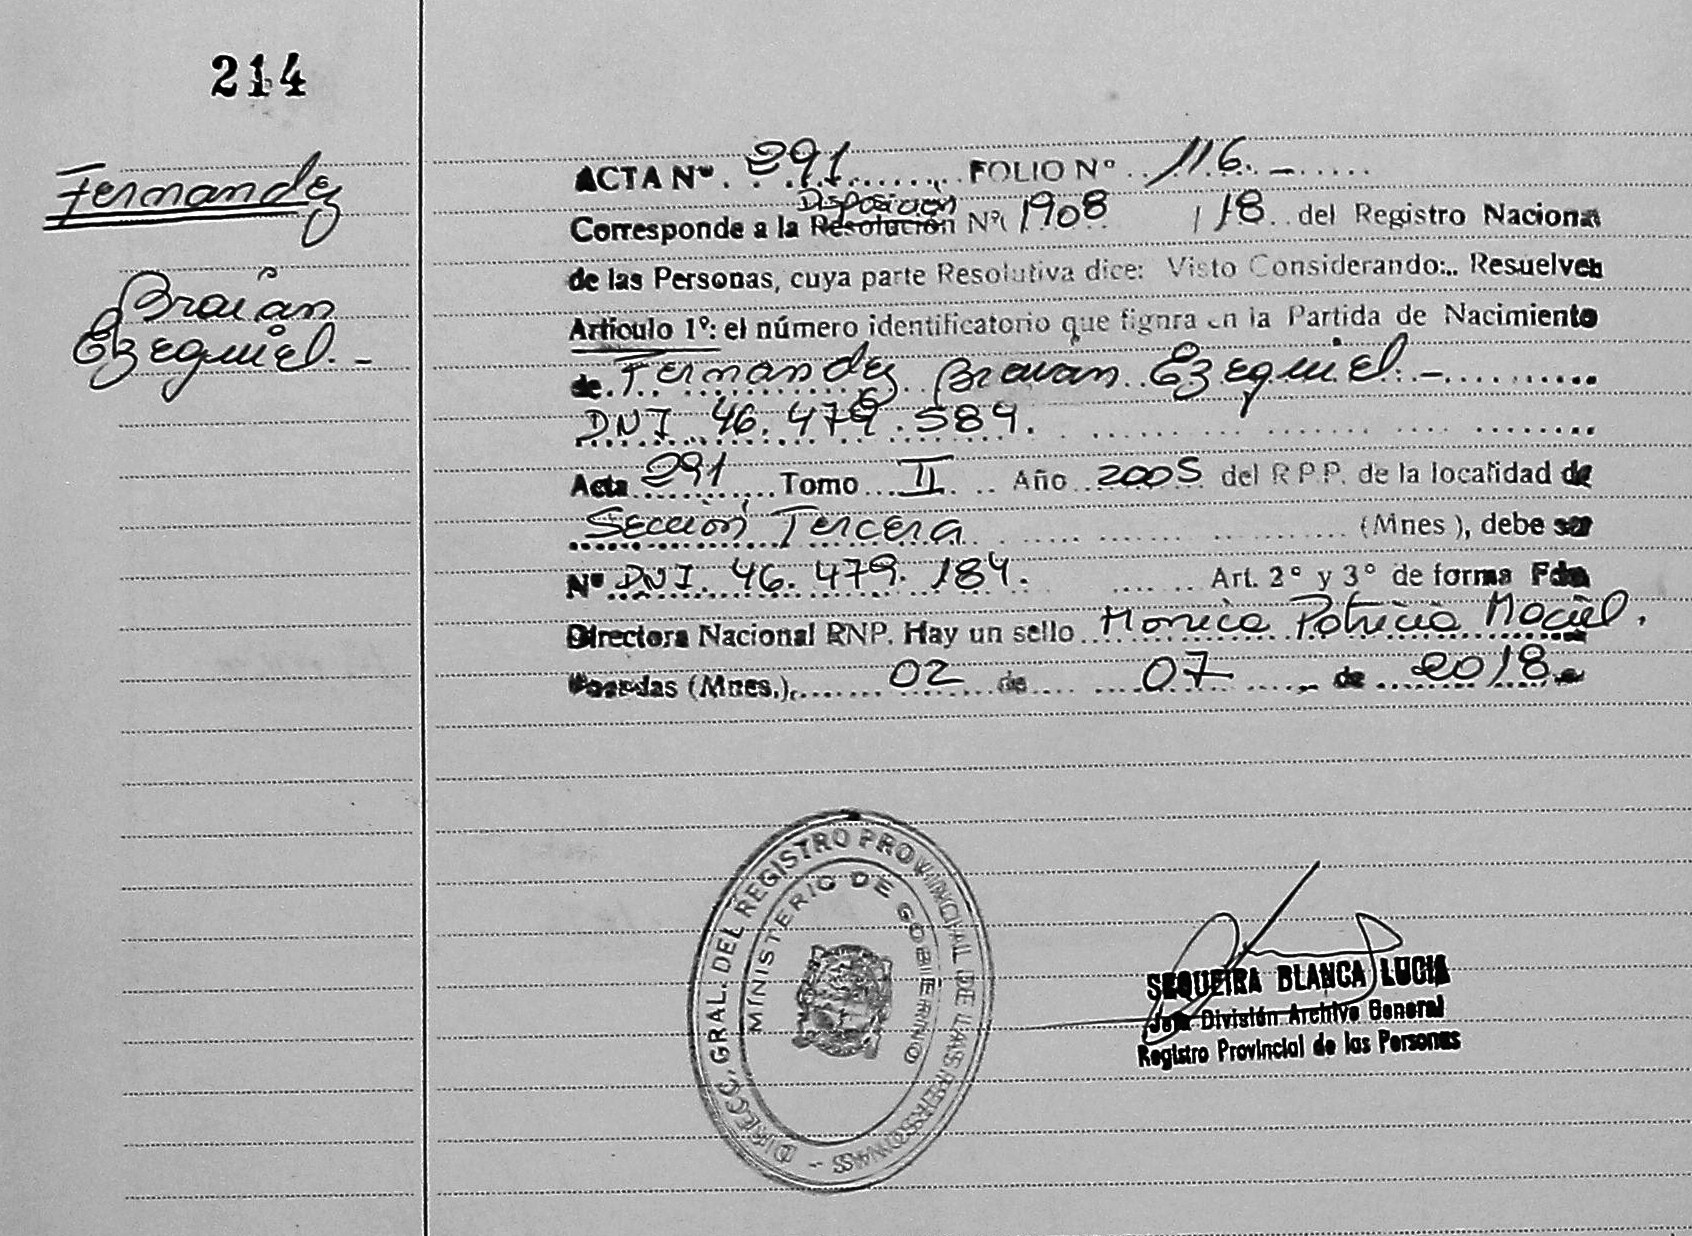 214
Fernandez
Braian
Ezequiel. -
ACTA Nº 291 FOLIO Nº 116. -
Disposición
Corresponde a la Resolución Nº 1908 / 18 del Registro Naciona
de las Personas, cuya parte Resolutiva dice: Visto Considerando:.. Resuelven
Articulo 1º: el número identificatorio que fignra en la Partida de Nacimiento
de Fernandez Braian Ezequiel. -
DNI 46. 479. 589.
Acta 291 Tomo II Año 2005 del R.P.P. de la localidad de
Sección Tercera (Mnes), debe ser
Nº DNI. 46. 479. 184. Art. 2º y 3º de forma Fdo
Directora Nacional RNP. Hay un sello Monica Patricia Maciel.
Posadas (Mnes.), 02 de 07 de 2018
DIRECC. GRAL. DEL REGISTRO PROVINCIAL DE LAS PERSONAS -
MINISTERIO DE GOBIERNO
SEQUEIRA BLANCA LUCIA
Jefa División Archivo General
Registro Provincial de las Personas